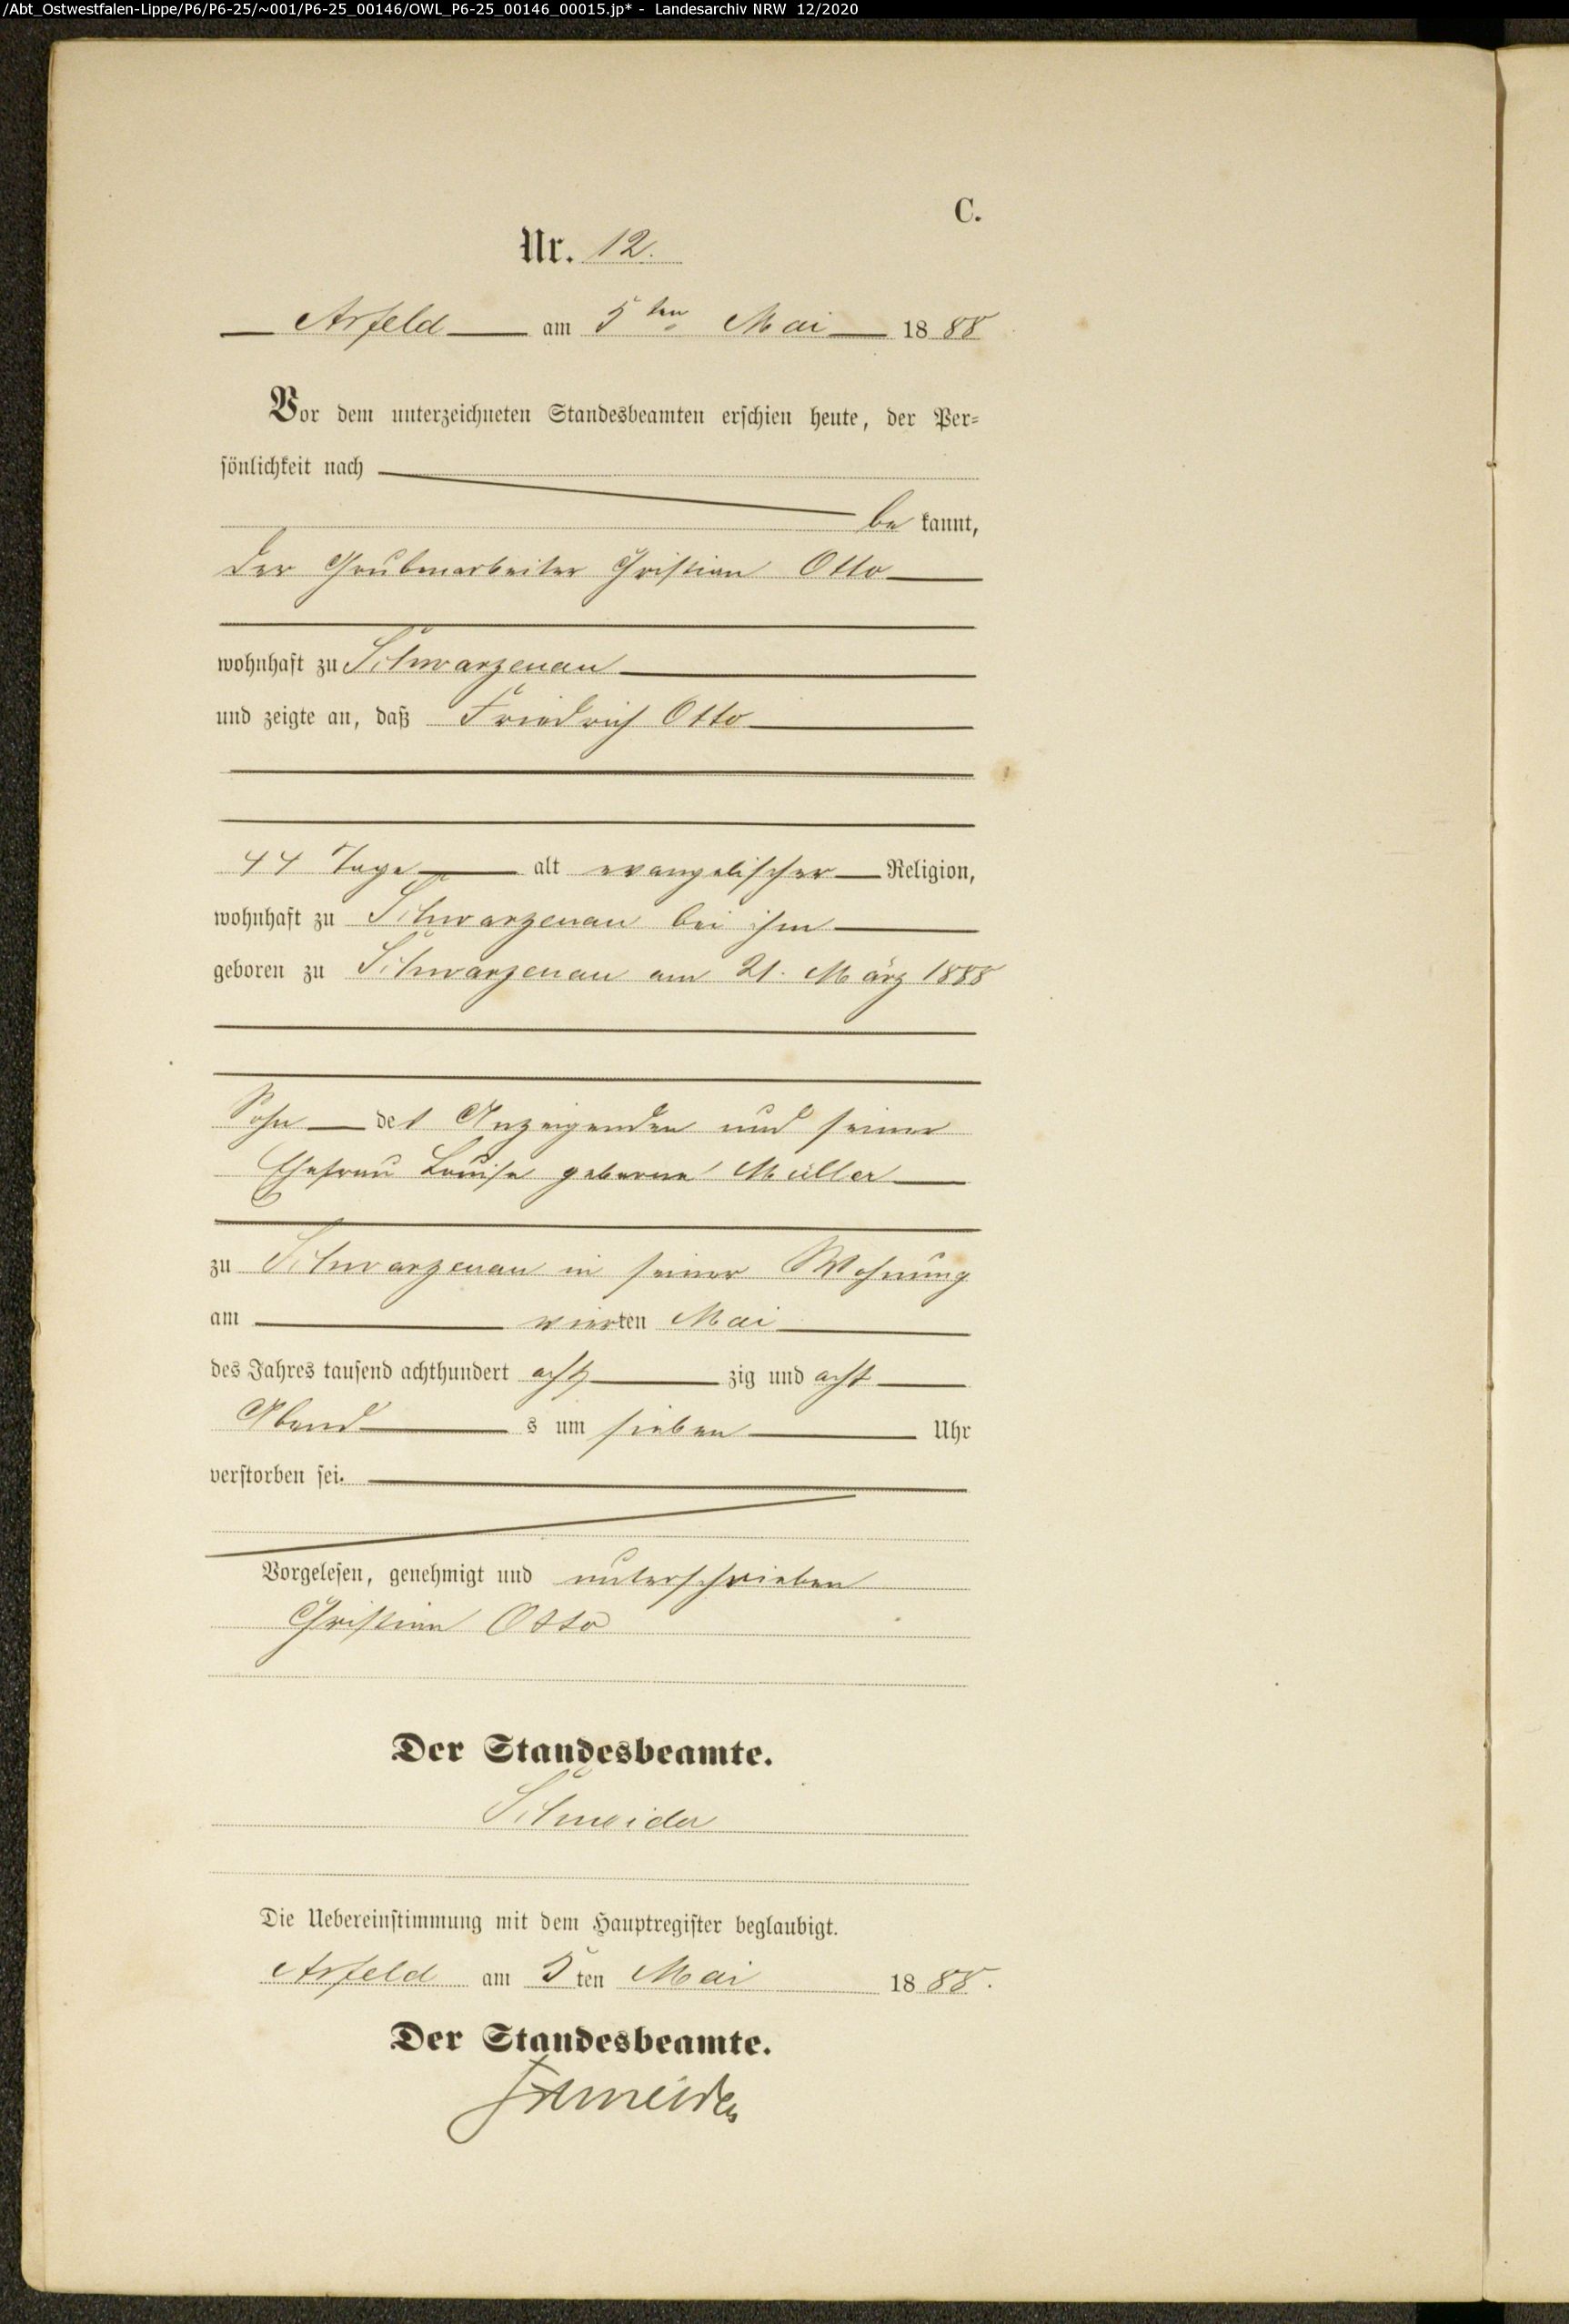 /Abt_Ostwestfalen-Lippe/P6/P6-25/~001/P6-25_00146/OWL_P6-25_00146_00015.jp* - Landesarchiv NRW 12/2020
C.
Nr. 12.
Arfeld am 5ten Mai 1888
Vor dem unterzeichneten Standesbeamten erschien heute, der Per=
sönlichkeit nach
be kannt,
der Grubenarbeiter Christian Otto
wohnhaft zu Schwarzenau
und zeigte an, daß Friedrich Otto
44 Tage alt evangelischer Religion,
wohnhaft zu Schwarzenau bei ihm
geboren zu Schwarzenau am 21. März 1888
Sohn des Anzeigenden und seiner
Ehefrau Louise geborne Müller
zu Schwarzenau in seiner Wohnung
am vierten Mai
des Jahres tausend achthundert acht zig und acht
Abend s um sieben Uhr
verstorben sei.
Vorgelesen, genehmigt und unterschrieben
Christian Otto
Der Standesbeamte.
Schneider
Die Uebereinstimmung mit dem Hauptregister beglaubigt.
Arfeld am 5ten Mai 1888.
Der Standesbeamte.
Schneider